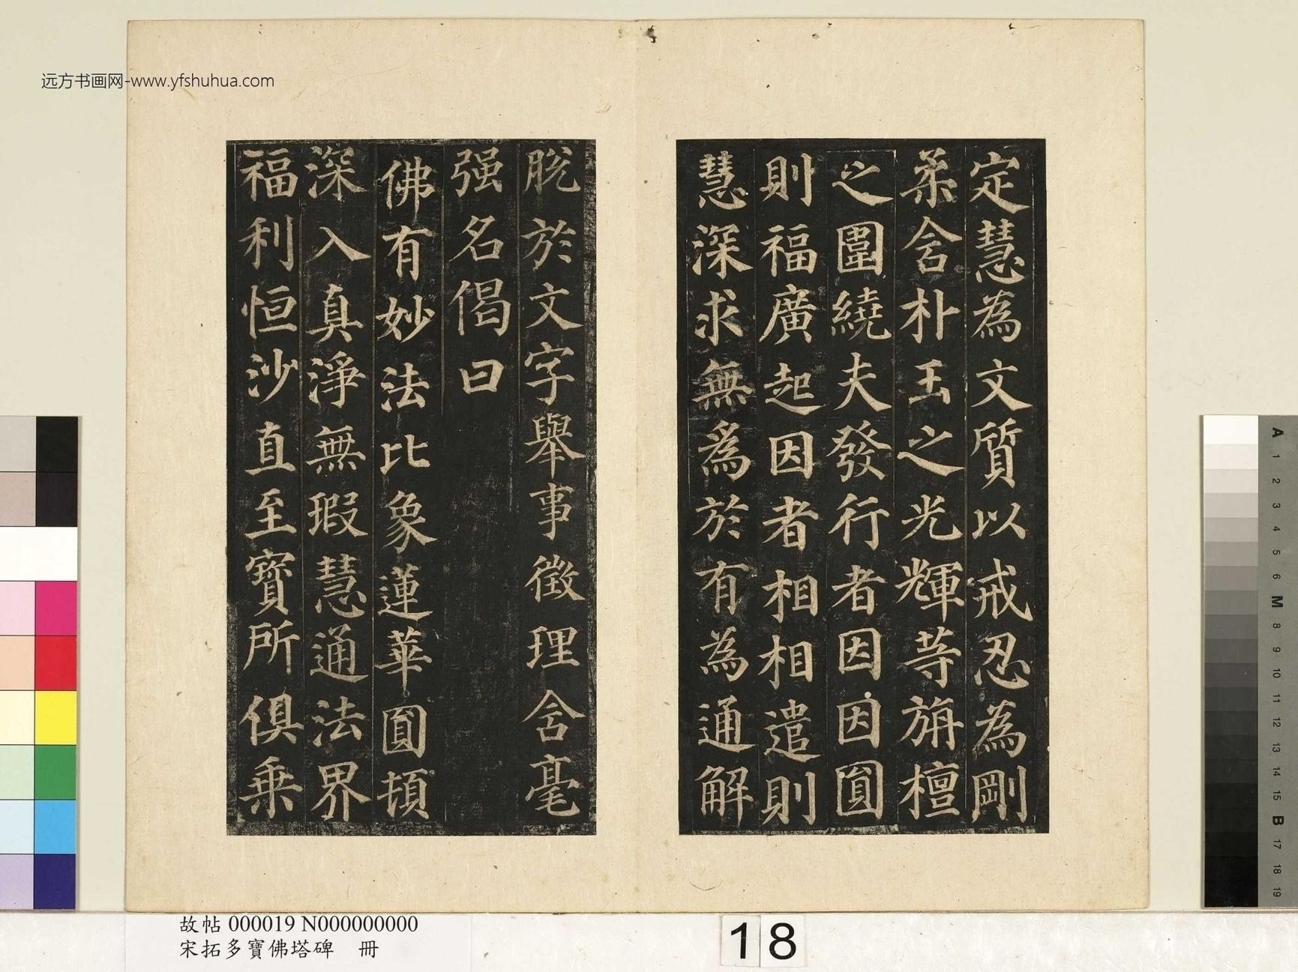 远方书画网-www.yfshuhua.com
定慧為文質以戒忍為剛
柔含朴玉之光輝等旃檀
之圍繞夫發行者因因圓
則福廣起因者相相遣則
慧深求無為於有為通解
脱於文字舉事徵理含毫
强名偈曰
佛有妙法比象蓮華圓頓
深入真淨無瑕慧通法界
福利恒沙直至寶所俱乘
故帖 000019 N000000000
宋拓多寶佛塔碑 冊
18
A
1
2
3
4
5
6
M
8
9
10
11
12
13
14
15
B
17
18
19